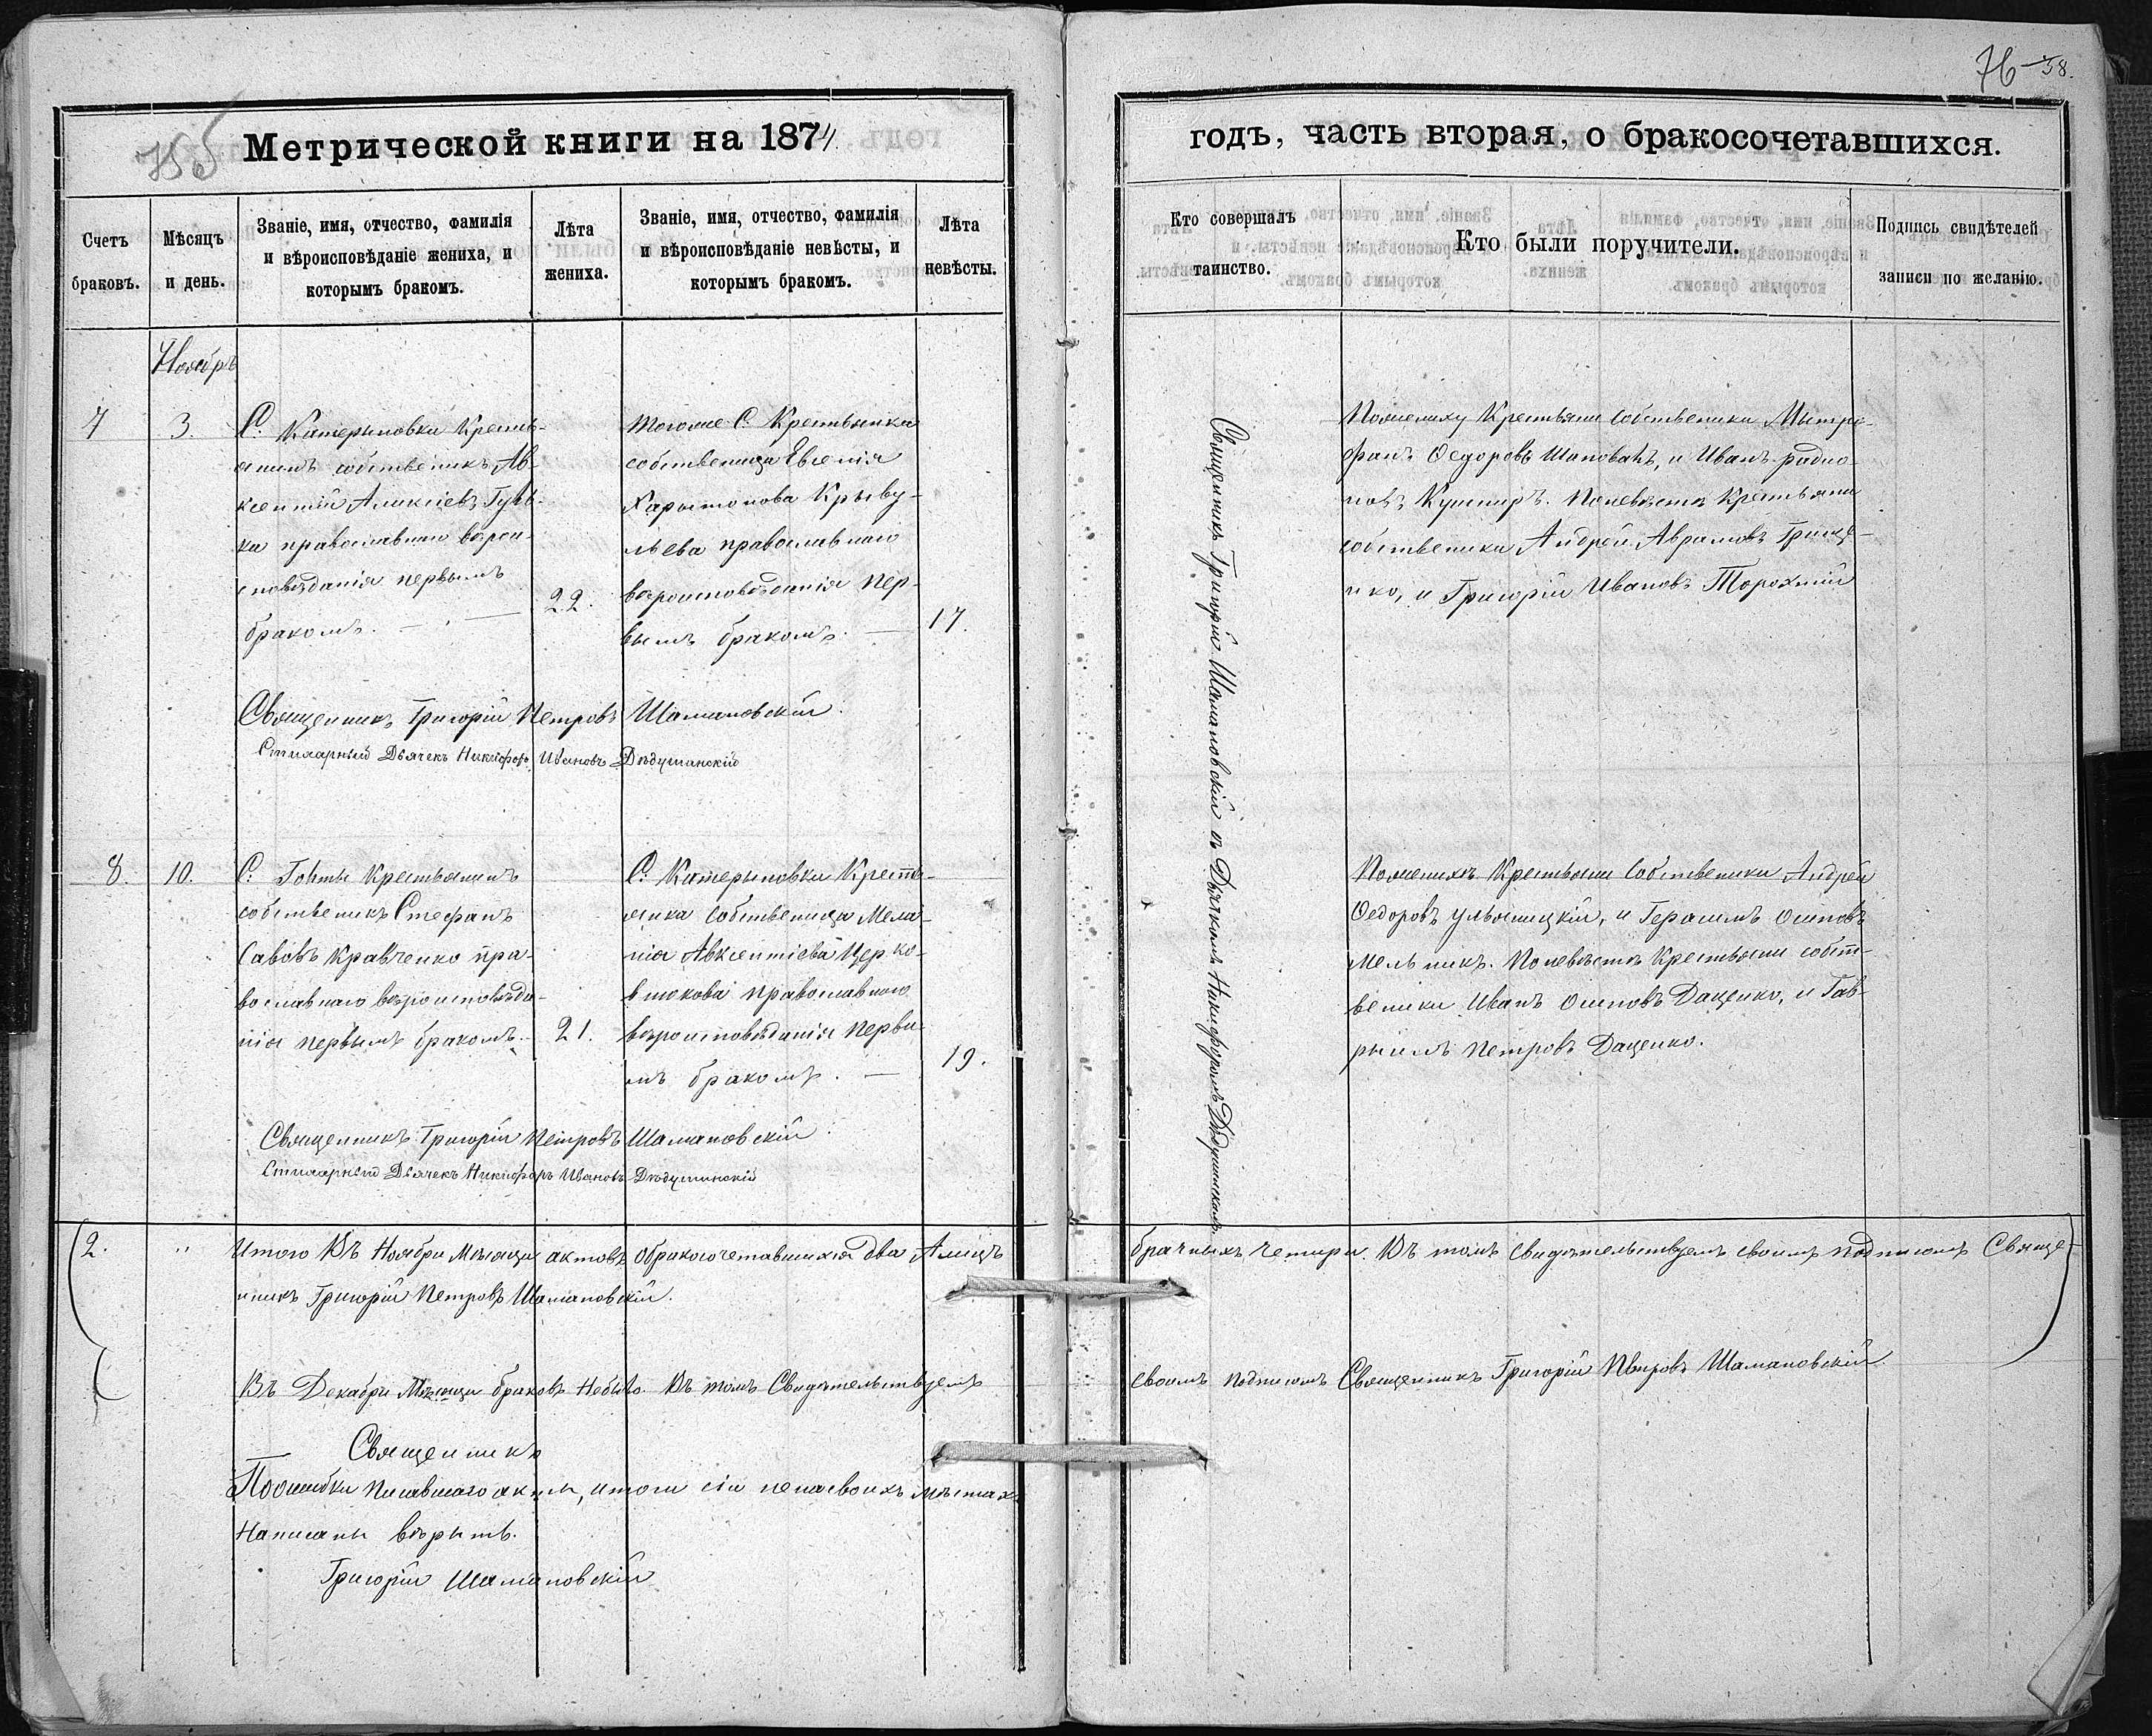 76 58.
Метрической книги на 1874.
годъ, часть вторая, о бракосочетавшихся.
Счетъ браковъ.
Мѣсяцъ и день.
Званіе, имя, отчество, фамилія
и вѣроисповѣданіе жениха, и
которымъ бракомъ.
Лѣта
жениха.
Званіе, имя, отчество, фамилія
и вѣроисповѣданіе невѣсты, и
которымъ бракомъ.
Лѣта
невѣсты.
Кто совершалъ
таинство.
Кто были поручители.
Подпись свидѣтелей
записи по желанію.
Ноябрь
7
3.
С. Катериновки Кресть-
янинъ собственикъ Ав-
ксентій Алексіевъ
православнаго вѣрои-
сповѣданія первымъ
бракомъ. —
22.
тогоже С. Крестьянка
собственица Евгенія
Харытонова Крыву-
льева православнаго
вѣроисповѣданія пер-
вымъ бракомъ. —
17.
Священникъ Григорій Шамановскій съ Дьячкомъ Никифоромъ
Пожениху Крестьяни собственики Мытро-
фанъ Ѳедоровъ Шаповалъ, и Иванъ радио-
новъ Кушниръ. Поневѣстѣ Крестьяни
собственики Андрей Аврамовъ Грище-
нко, и Григорій Ивановъ Торохтій
Священникъ Григорій Петровъ Шамановскій
Стихарный Дьячекъ Никифоръ Ивановъ Дѣдушинскій
8.
10.
С. Гонты Крестьянинъ
собственикъ Стефанъ
Савовъ Кравченко пра-
вославнаго вѣроисповѣда-
нія первымъ бракомъ.
21.
С. Катериновки Крестья-
янка собственица Мела-
нія Авксентіева Церко-
внюкова православного
вѣроисповѣданія перви-
мъ бракомъ. —
19.
Пожениху Крестьяни собственики Андрей
Ѳедоровъ Ульяницкій, и Герасимъ Осиповъ
Мельникъ. Поневѣстѣ Крестьяни собст-
веники Иванъ Осиповъ Даценко, и Гав-
рыилъ Петровъ Даценко.
Священникъ Григорій Петровъ Шамановскій
Стихарный Дьячекъ Никифоръ Ивановъ Дѣдушинскій
2. " Итого Въ Ноябри Мѣсяци актовъ обракосочетавшихся два Алицъ брачныхъ четири. Въ томъ свидѣтельствуемъ своимъ подписомъ Свяще-
нникъ Григорій Петровъ Шамановскій.
Въ Декабри Мѣсяци браковъ Небыло. Въ томъ Свидѣтельствуемъ своимъ подписомъ Священникъ Григорій Петровъ Шамановскій.
Священникъ
Поошибки писавшаго акты, итоги сіи ненасвоихъ мѣстахъ
Написаны вѣрить.
Григорій Шамановскій